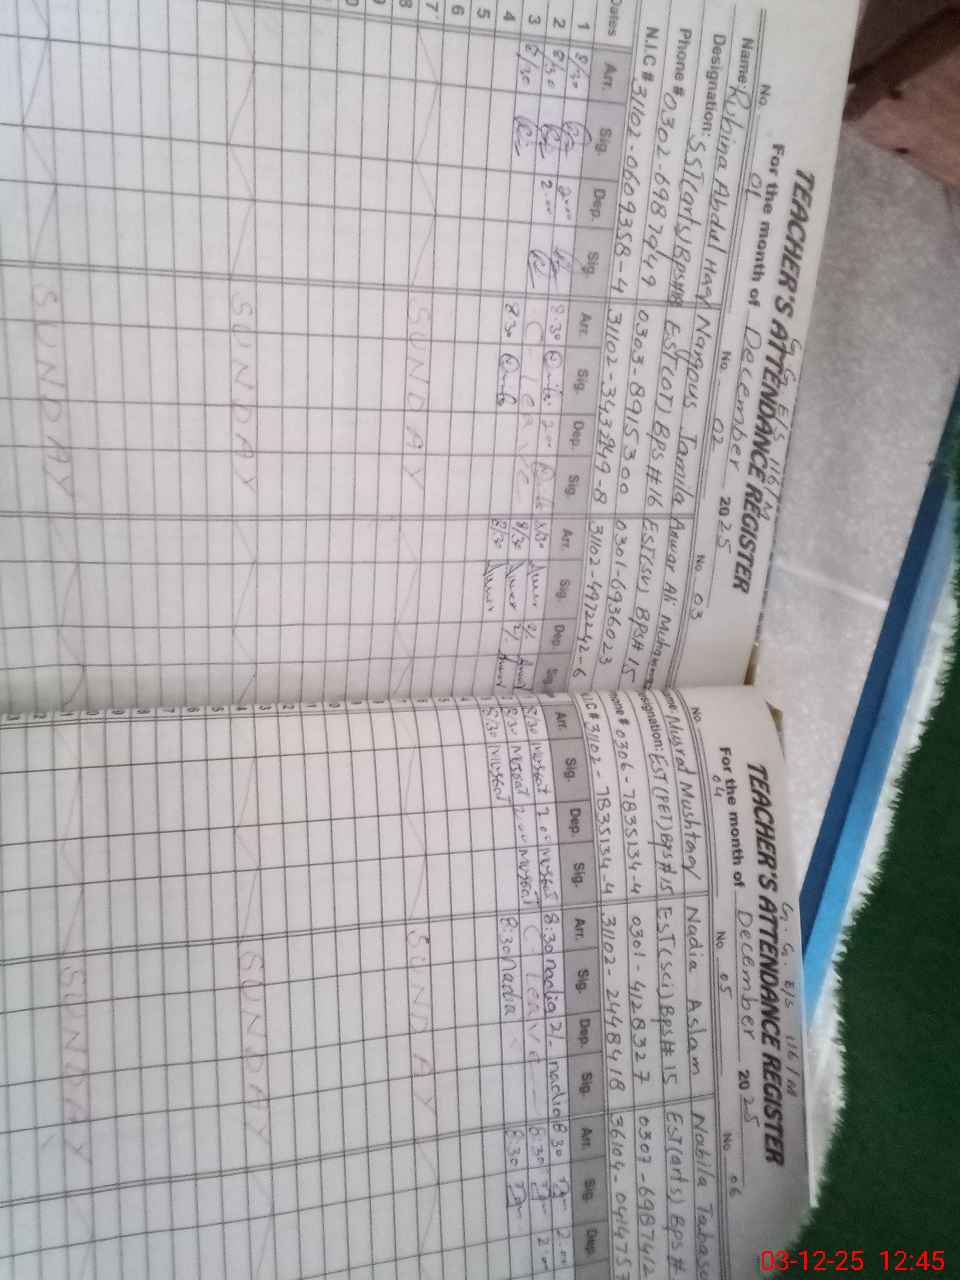 G. G. E/S 116/M
TEACHER'S ATTENDANCE REGISTER
For the month of December 2025
No. 01 No. 02 No. 03
Name: Rubina Abdul Haq Nargous Jamila Anwar Ali
Designation: SST(arts) Bps#18 EST(OT) BPS#16 EST(SV) BPS#15
Phone # 0302-6987949 0303-8915300 0301-6936023
N.I.C # 31102-0609358-4 31102-4972242-6
Dates Arr. Sig. Dep. Sig. Arr. Sig. Dep. Sig. Arr. Sig. Dep. Sig.
1 8/30 2.00 8:30 2.00 8/30
2 8/30 2.00 C - Leave 8/30
3 8/30 8:30 8/30
4
5
6
7 SUNDAY
8
9
SUNDAY
SUNDAY
G. G. E/S 116/M
TEACHER'S ATTENDANCE REGISTER
For the month of December 2025
No. 04 No. 05 No. 06
Nusrat Mushtaq Nadia Aslam Nabila
EST(PET) Bps#15 EST(sci) Bps#15 EST(arts) Bps#
0306-7835134-4 0301-4128327 0307-6987412
31102-7835134-4 31102-2448418 36104-0414757
Arr. Sig. Dep. Sig. Arr. Sig. Dep. Sig. Arr. Sig. Dep.
8/30 Nusrat 2.00 Nusrat 8:30 nadia 2/- nadia 8:30 2.00
8/30 Nusrat 2.00 Nusrat C Leave 8:30 2.00
8/30 Nusrat 8:30 nadia 8:30
SUNDAY
SUNDAY
SUNDAY
03-12-25 12:45